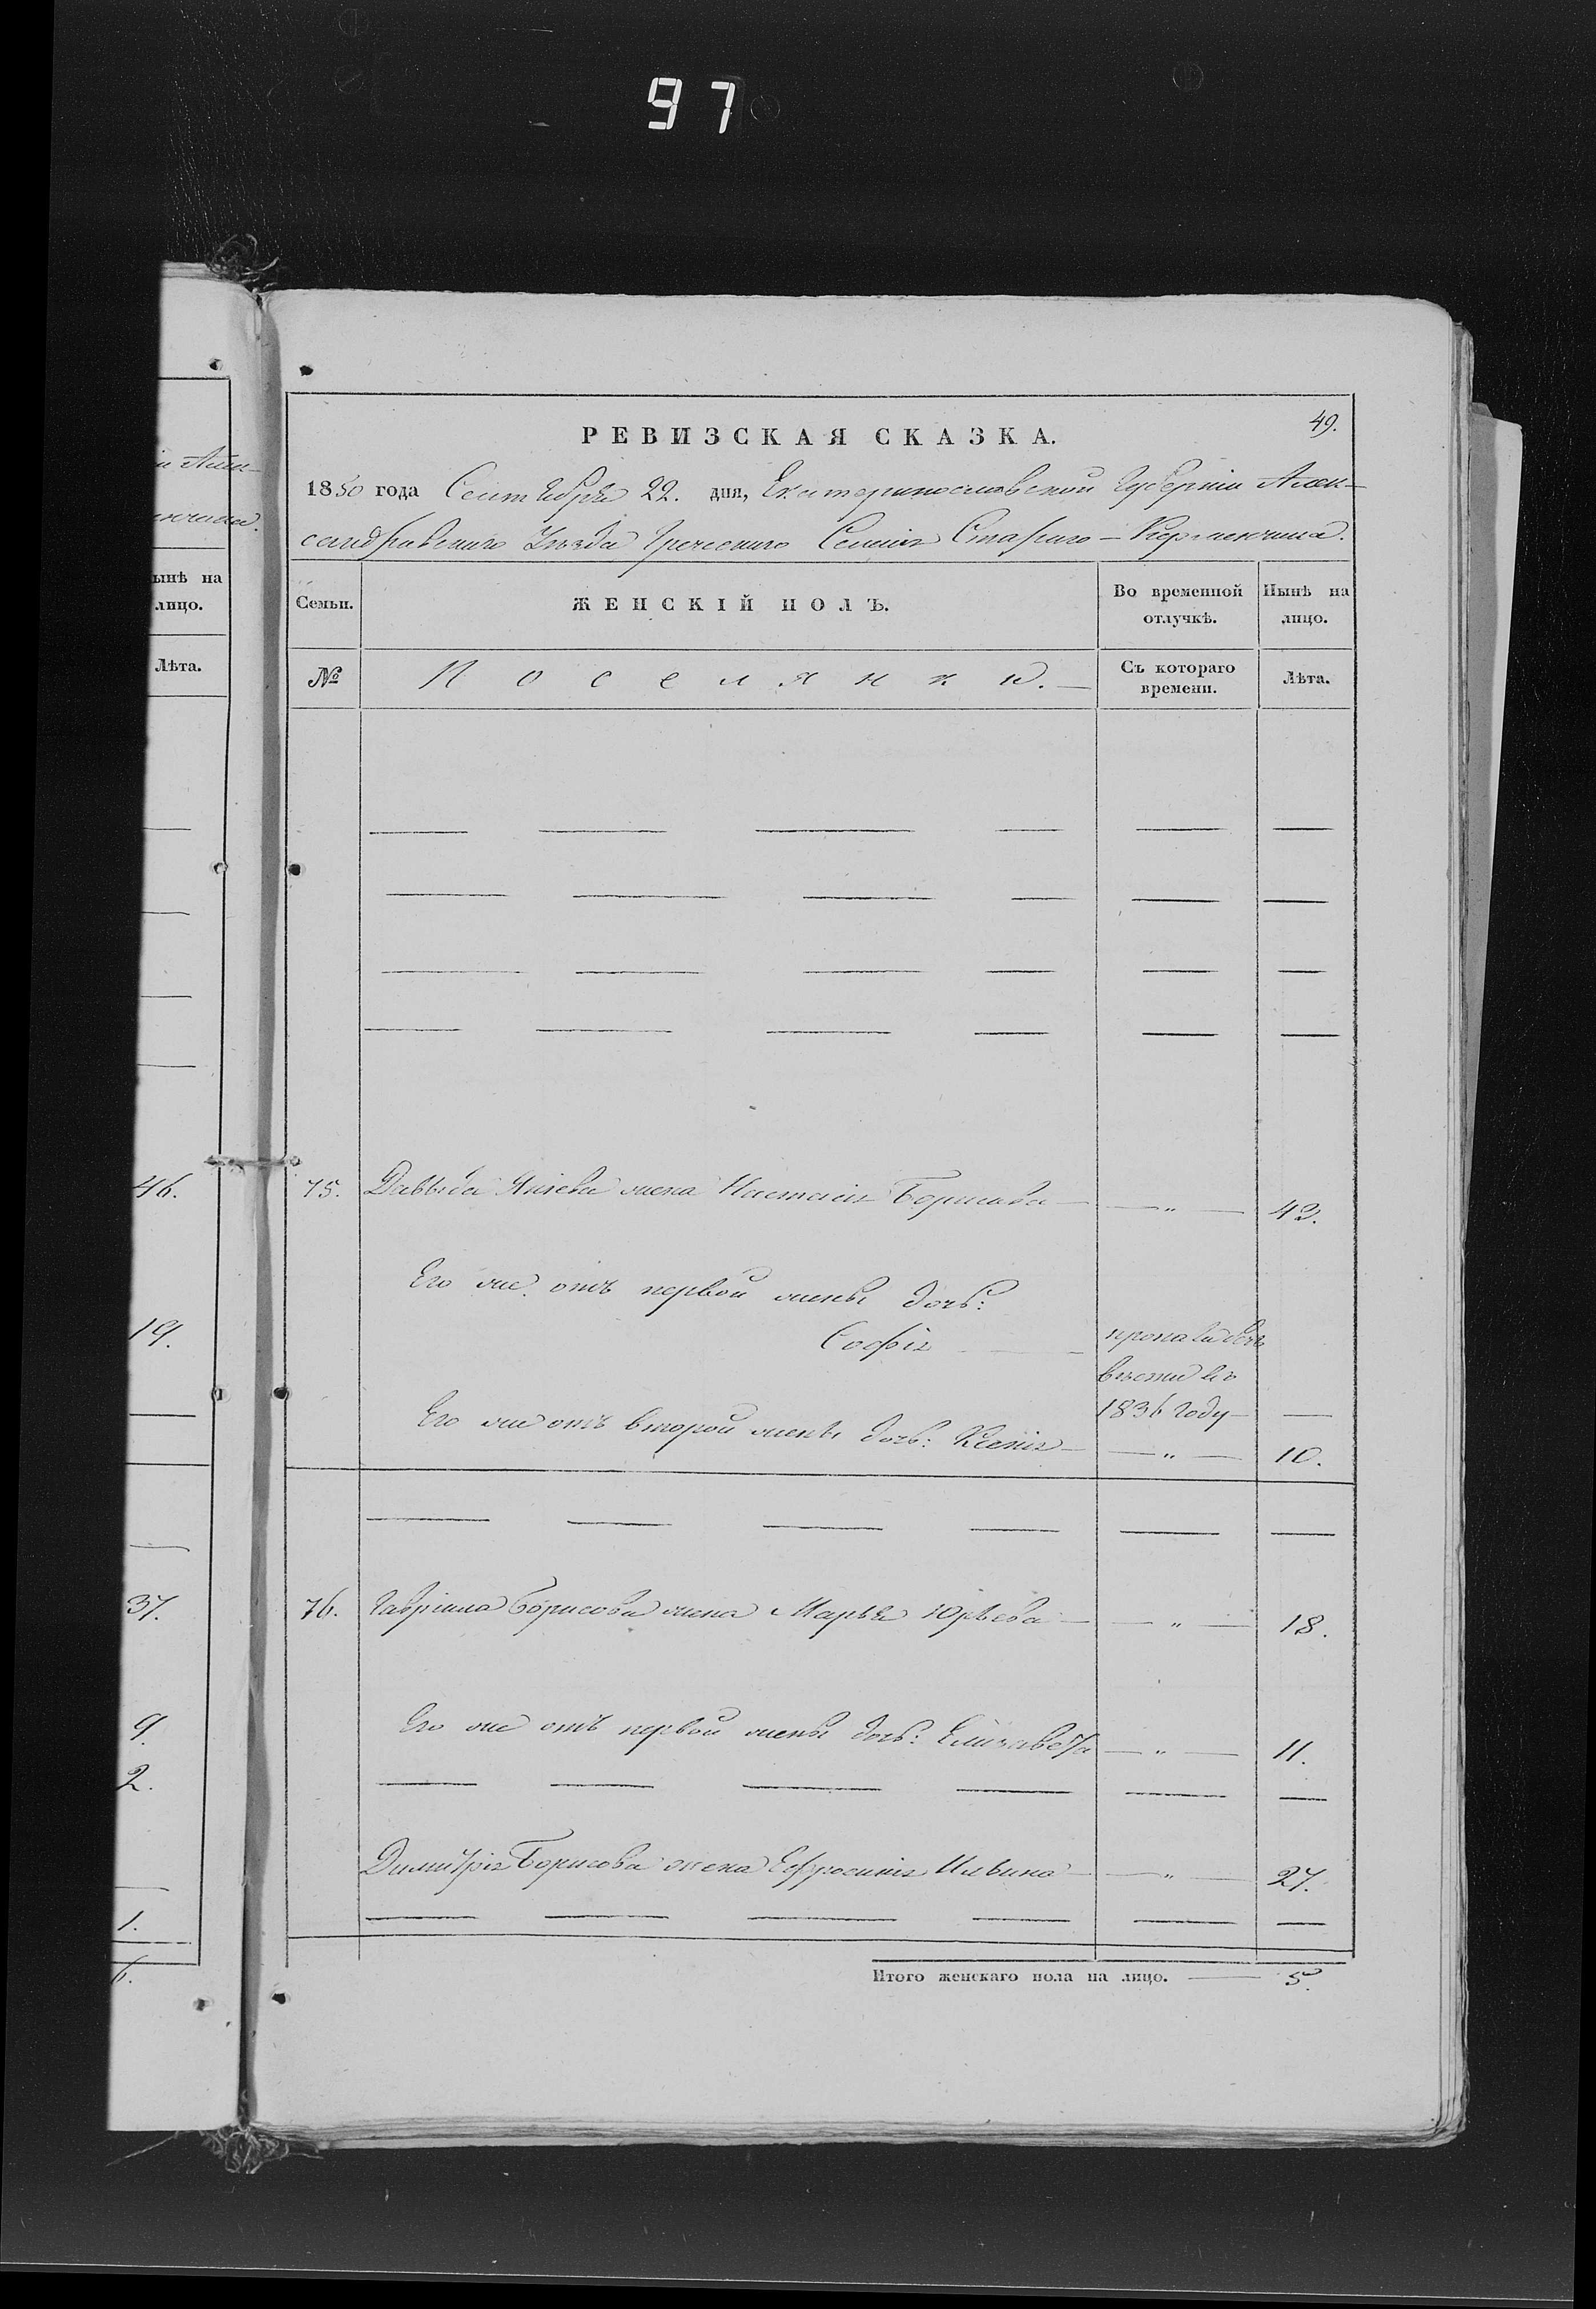 97
49.
РЕВИЗСКАЯ СКАЗКА.
1850 года Сентября 22. дня, Екатеринославской Губерніи Алек-
сандравскаго Уѣзда Греческаго Селенія Стараго-Керменчика.
ынѣ на
лицо.
Лѣта.
Семьи.
ЖЕНСКІЙ ПОЛЪ.
Во временной
отлучкѣ.
Нынѣ на
лицо.
№
Поселянки.
Съ котораго
времени.
Лѣта.
46.
75. Давыда Яніева жена Настасія Борисова — " — 42.
Его же отъ первой жены дочь:
19.
Софія
пропала безъ
вѣсти въ
1836 году —
Его же отъ второй жены дочь: Ксенія — " — 10.
37.
76. Гавріила Борисова жена Марья Юрьева — " — 18.
9.
Его же отъ первой жены дочь: Елизавета — " — 11.
2.
Димитрія Борисова жена Ефросинія Ильина — " — 27.
1.
6.
Итого женскаго пола на лицо. — 5.